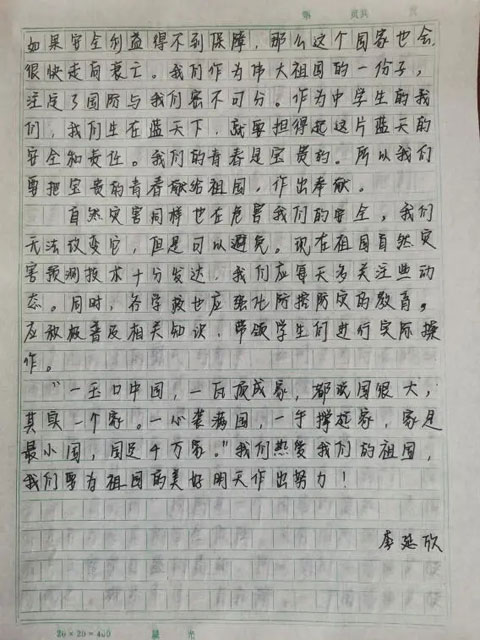 如果安全利益得不到保障，那么这个国家也会
很快走向衰亡。我们作为伟大祖国的一份子，
注定了国防与我们密不可分。作为中学生的我
们，我们生在蓝天下，就要担得起这片蓝天的
安全和责任。我们的青春是宝贵的。所以我们
要把宝贵的青春献给祖国，作出奉献。
自然灾害同样也在危害我们的安全，我们
无法改变它，但是可以避免。现在祖国自然灾
害预测技术十分发达，我们应每天多关注些动
态。同时，各学校也应强化防控防灾的教育，
应积极普及相关知识，带领学生们进行实际操
作。
“一玉口中国，一瓦顶成家，都说国很大，
其实一个家。一心装满国，一手撑起家，家是
最小国，国是千万家。”我们热爱我们的祖国，
我们要为祖国的美好明天作出努力！
李延欣
20×20=400